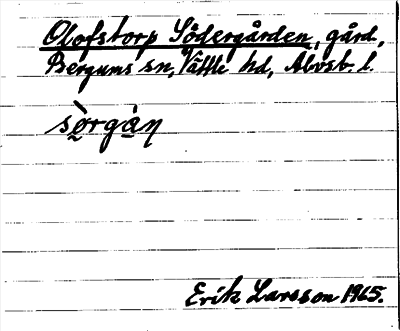 Olofstorp Södergården, gård,
Bergums sn, Vättle hd, Älvsb. l.
sò̤rgà̤ŋ
Erik Larsson 1965.